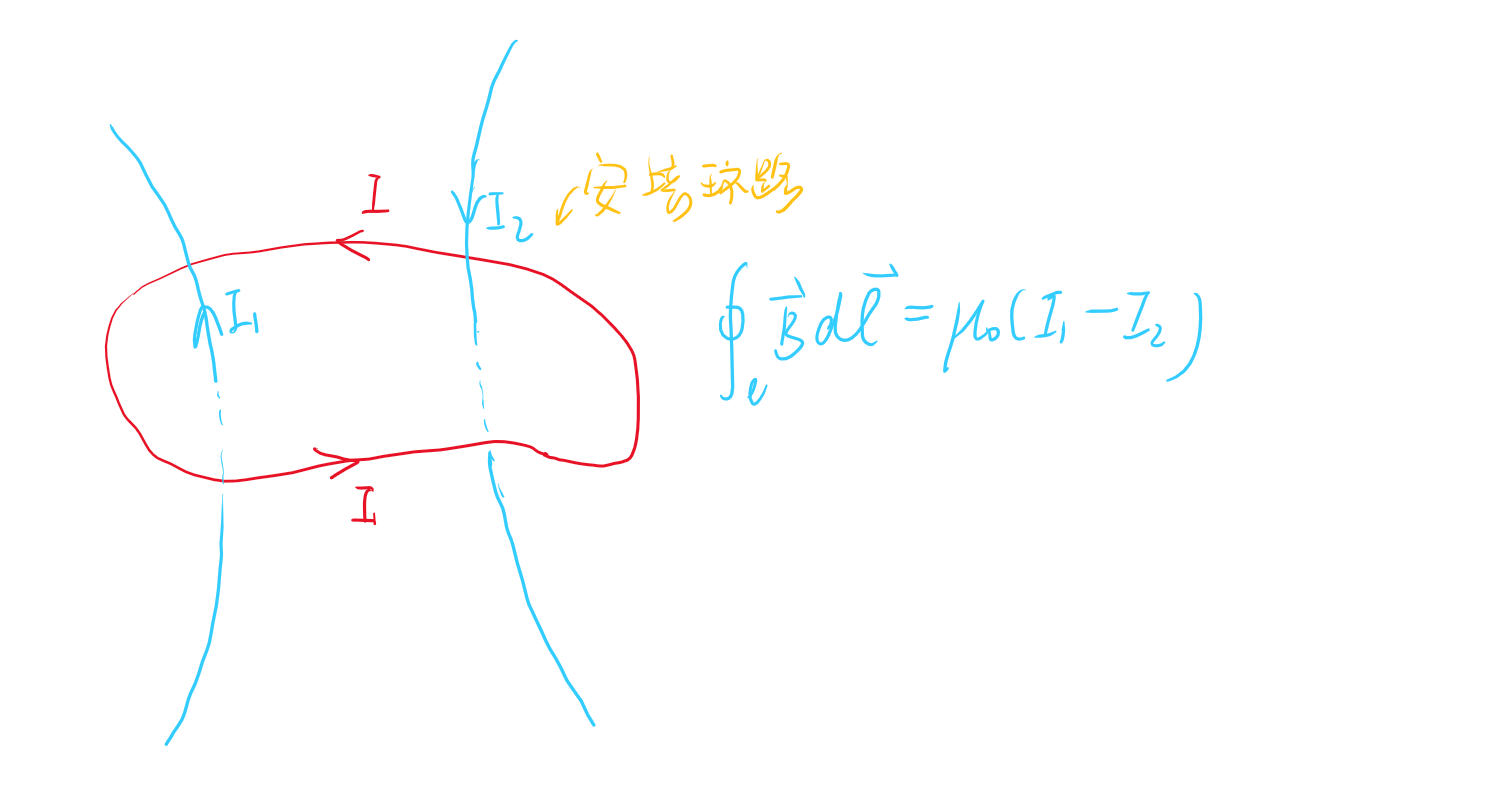 I
I₂
安培环路
I₁
∮ₗ B⃗ dl⃗ = μ₀(I₁ - I₂)
I